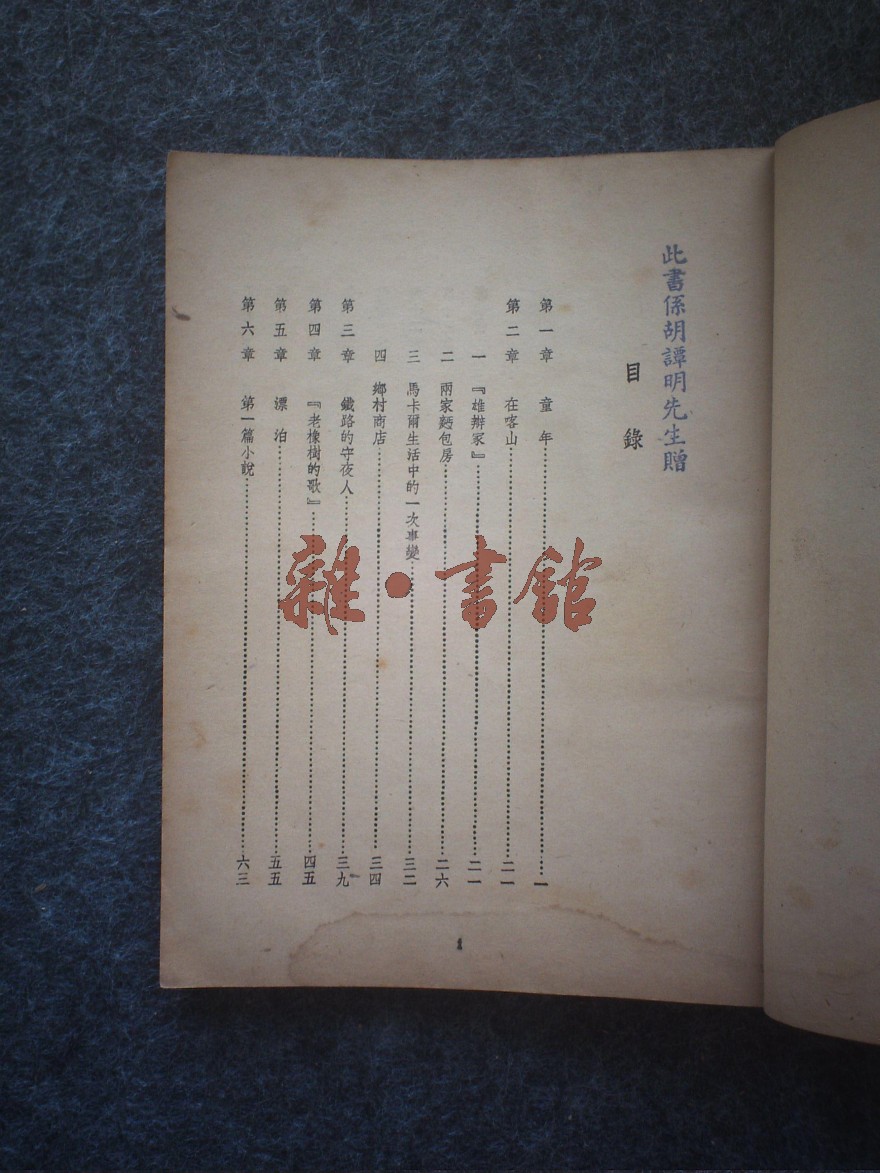 此書係胡譚明先生贈
目錄
第一章 童年……一
第二章 在喀山……二一
一 『雄辯家』……二一
二 兩家麵包房……二六
三 馬卡爾生活中的一次事變……三二
四 鄉村商店……三四
第三章 鐵路的守夜人……三九
第四章 『老橡樹的歌』……四五
第五章 漂泊……五五
第六章 第一篇小說……六三
1
雜·書館